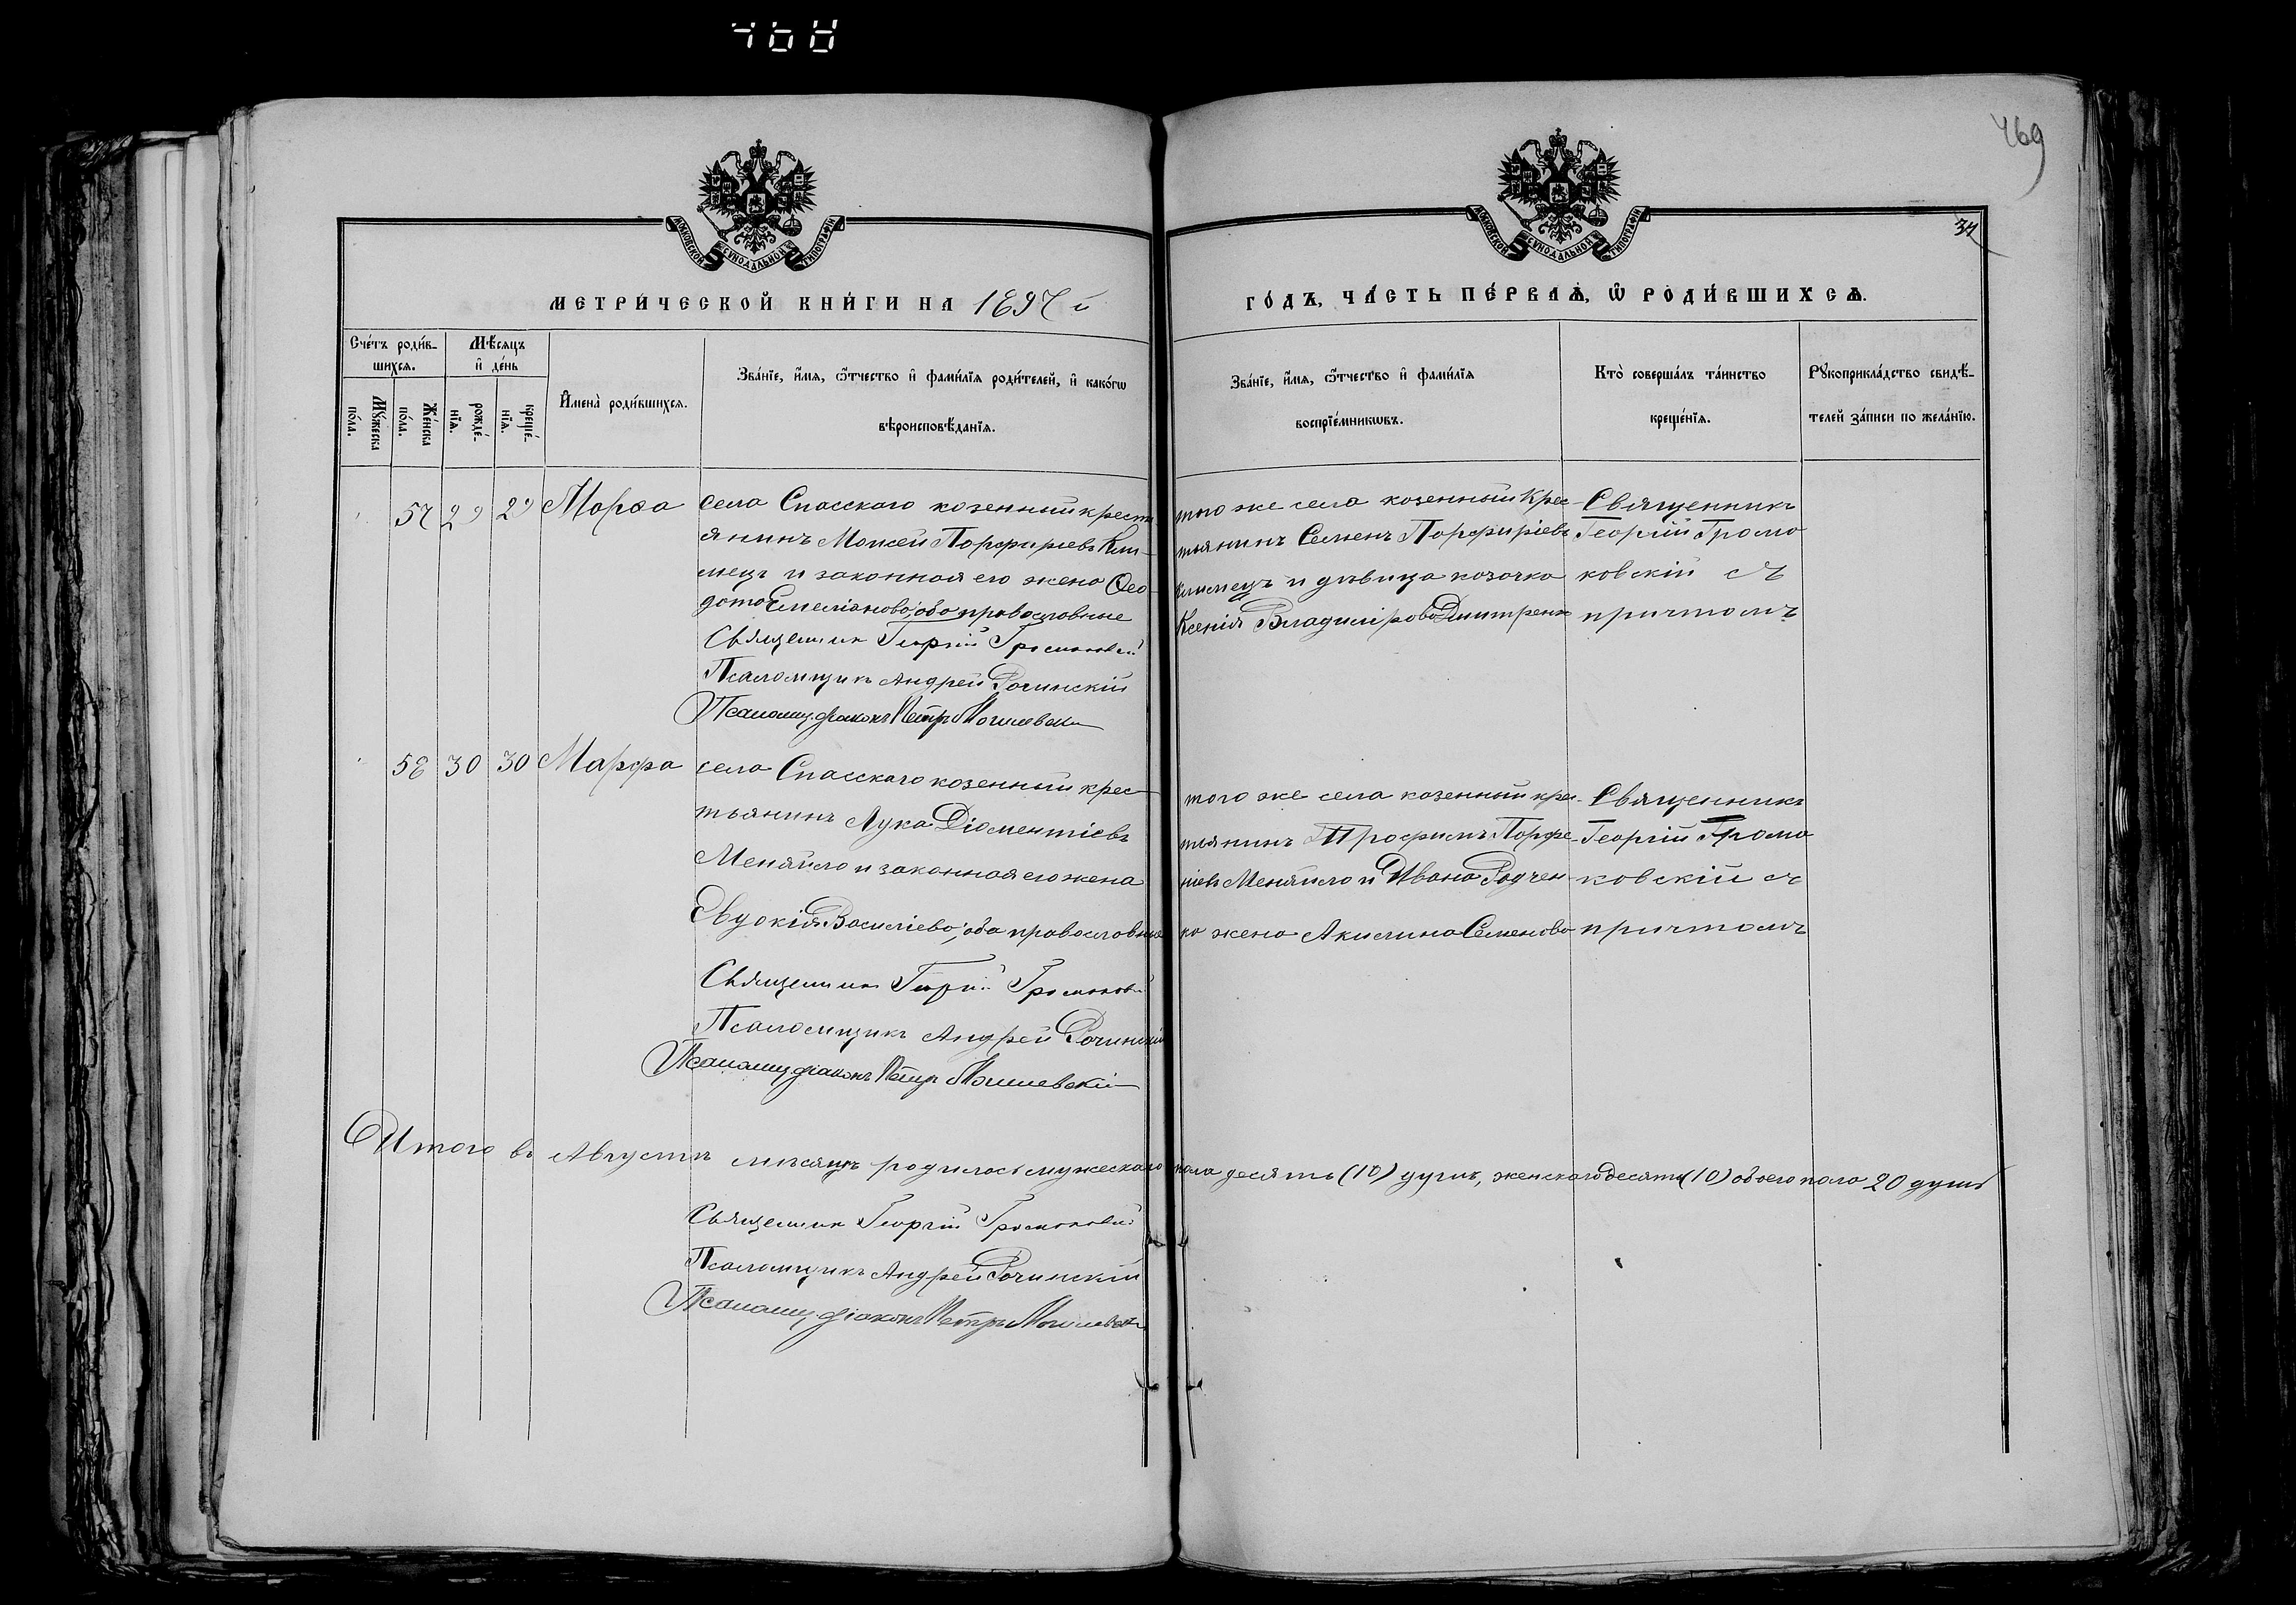 468
469
34
МОСКОВСКОЙ СѴНОДАЛЬНОЙ ТИПОГРАФІИ
МОСКОВСКОЙ СѴНОДАЛЬНОЙ ТИПОГРАФІИ
МЕТРИ́ЧЕСКОЙ КНИ́ГИ НА 1897 й
ГО́ДЪ, ЧА́СТЬ ПЕ́РВАѦ, Ѡ РОДИ́ВШИХСѦ.
Сче́тъ роди́в-
шихсѧ.
Мꙋ́жеска
по́ла.
Же́нска
по́ла.
Мѣ́сѧцъ
и҆ де́нь
рожде́-
нїѧ.
креще́-
нїѧ.
И҆мена̀ роди́вшихсѧ.
Зва́нїе, и҆́мѧ, ѻ҆́тчество и҆ фами́лїѧ роди́телей, и҆ како́гѡ
вѣроисповѣ́данїѧ.
Зва́нїе, и҆́мѧ, ѻ҆́тчество и҆ фами́лїѧ
воспрїе́мникѡвъ.
Кто̀ соверша́лъ та́инство
креще́нїѧ.
Рꙋкоприкла́дство свидѣ́-
телей за́писи по жела́нїю.
57 29 29 Марѳа
села Спасскаго козенный крест
янинъ Моисей Порфиріевъ Кли-
мецъ и законная его жена Ѳео-
дота Емеліанова, оба православные
Священник Георгій Громоковскій
Псаломщикъ Андрей Рочинскій
Псаломщ. діаконъ Петръ Могилевскій
того же села козенный Крес-
тьянинъ Семенъ Порфиріевъ
Климецъ и дѣвица козачка
Ксенія Владимірова Дмитренк
Священникъ
Георгій Громо
ковскій съ
причтомъ
58 30 30 Марфа
села Спасскаго козенный крес-
тьянинъ Лука Діоментіевъ
Меняйло и законная его жена
Евдокія Василіева, оба православные
Священник Георгій Громоковскій
Псаломщикъ Андрей Рочинскій
Псаломщ. діаконъ Петръ Могилевскій
того же села козенный крес-
тьянинъ Трофимъ Порфе-
ріевъ Меняйло и Ивана Родчен-
ка жена Акилина Семенова
Священникъ
Георгій Громо
ковскій съ
причтомъ
Итого въ Августѣ мѣсяцѣ родилось мужескаго пола десять (10) душъ, женскаго десять (10) обоего пола 20 душъ
Священник Георгій Громоковскій
Псаломщикъ Андрей Рочинскій
Псаломщ. діаконъ Петръ Могилевскій